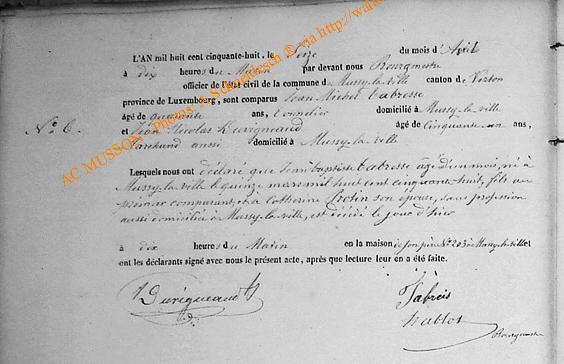 L'AN mil huit cent cinquante-huit, le Seize du mois d'Avril
à dix heures du Matin par devant nous Bourgmestre
officier de l'état civil de la commune de Mussy-la-ville canton de Virton
province de Luxembourg, sont comparus Jean Michel
âgé de quarante ans, Tonnelier domicilié à Mussy-la-ville
N.º 6.
et Jean Nicolas âgé de Cinquante un ans,
Marchand aussi domicilié à Mussy-la-ville
Lesquels nous ont déclaré que Jean baptiste âgé d'un mois, né à
Mussy-la-ville le quinze mars mil huit cent cinquante-huit, fils du
premier comparant, et à Catherine son épouse, sans profession
aussi domiciliée à Mussy-la-ville, est décédé le jour d'hier
à dix heures du Matin en la maison de son père Nº 203 à Mussy-la-ville et
ont les déclarants signé avec nous le présent acte, après que lecture leur en a été faite.
Bourgmestre
AC MUSSON - Photos: A. Schleidesch @ via http://